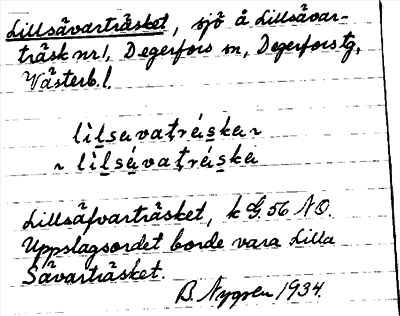 Lillsävarträsket, sjö å Lillsävar-
träsk nr 1, Degerfors sn, Degerfors tg,
Västerb. l.
lìlsavatráska ~
~ lìlsávatráska
Lillsäfvarträsket, k G. 56 NO.
Uppslagsordet borde vara Lilla
Sävarträsket.
B. Nygren 1934.